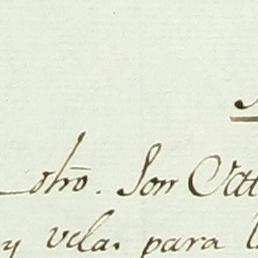 otrō. Son Catt
y vela. para l